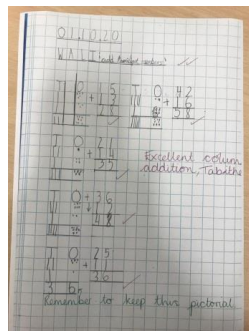 01.10.20
WALT: "add two digit numbers"
T O + 15 13 28
T O + 42 16 58
T O + 21 14 35
Excellent column
addition, Tabitha
T O + 36 12 48
T O + 25 11 36
3 6
Remember to keep this pictorial